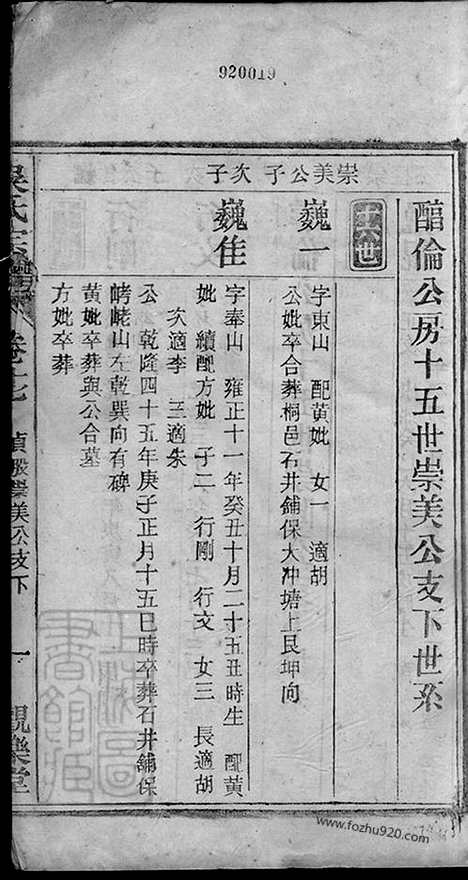 920019
醕倫公房十五世崇美公支下世系
十六世
崇美公子 次子
巍一
字東山 配黃妣 女一 適胡
公妣卒合葬桐邑石井鋪保大冲塘上艮坤向
巍佳
字奉山 雍正十一年癸丑十月二十五丑時生 配黃
妣 續配方妣 子二 行剛 行文 女三 長適胡
次適李 三適朱
公 乾隆四十五年庚子正月十五巳時卒葬石井鋪保
峠峔山左乾巽向有碑
黃妣卒葬與公合墓
方妣卒葬
吳氏宗譜 卷十七 貞股崇美公支下 一 覜樂堂
www.fozhu920.com